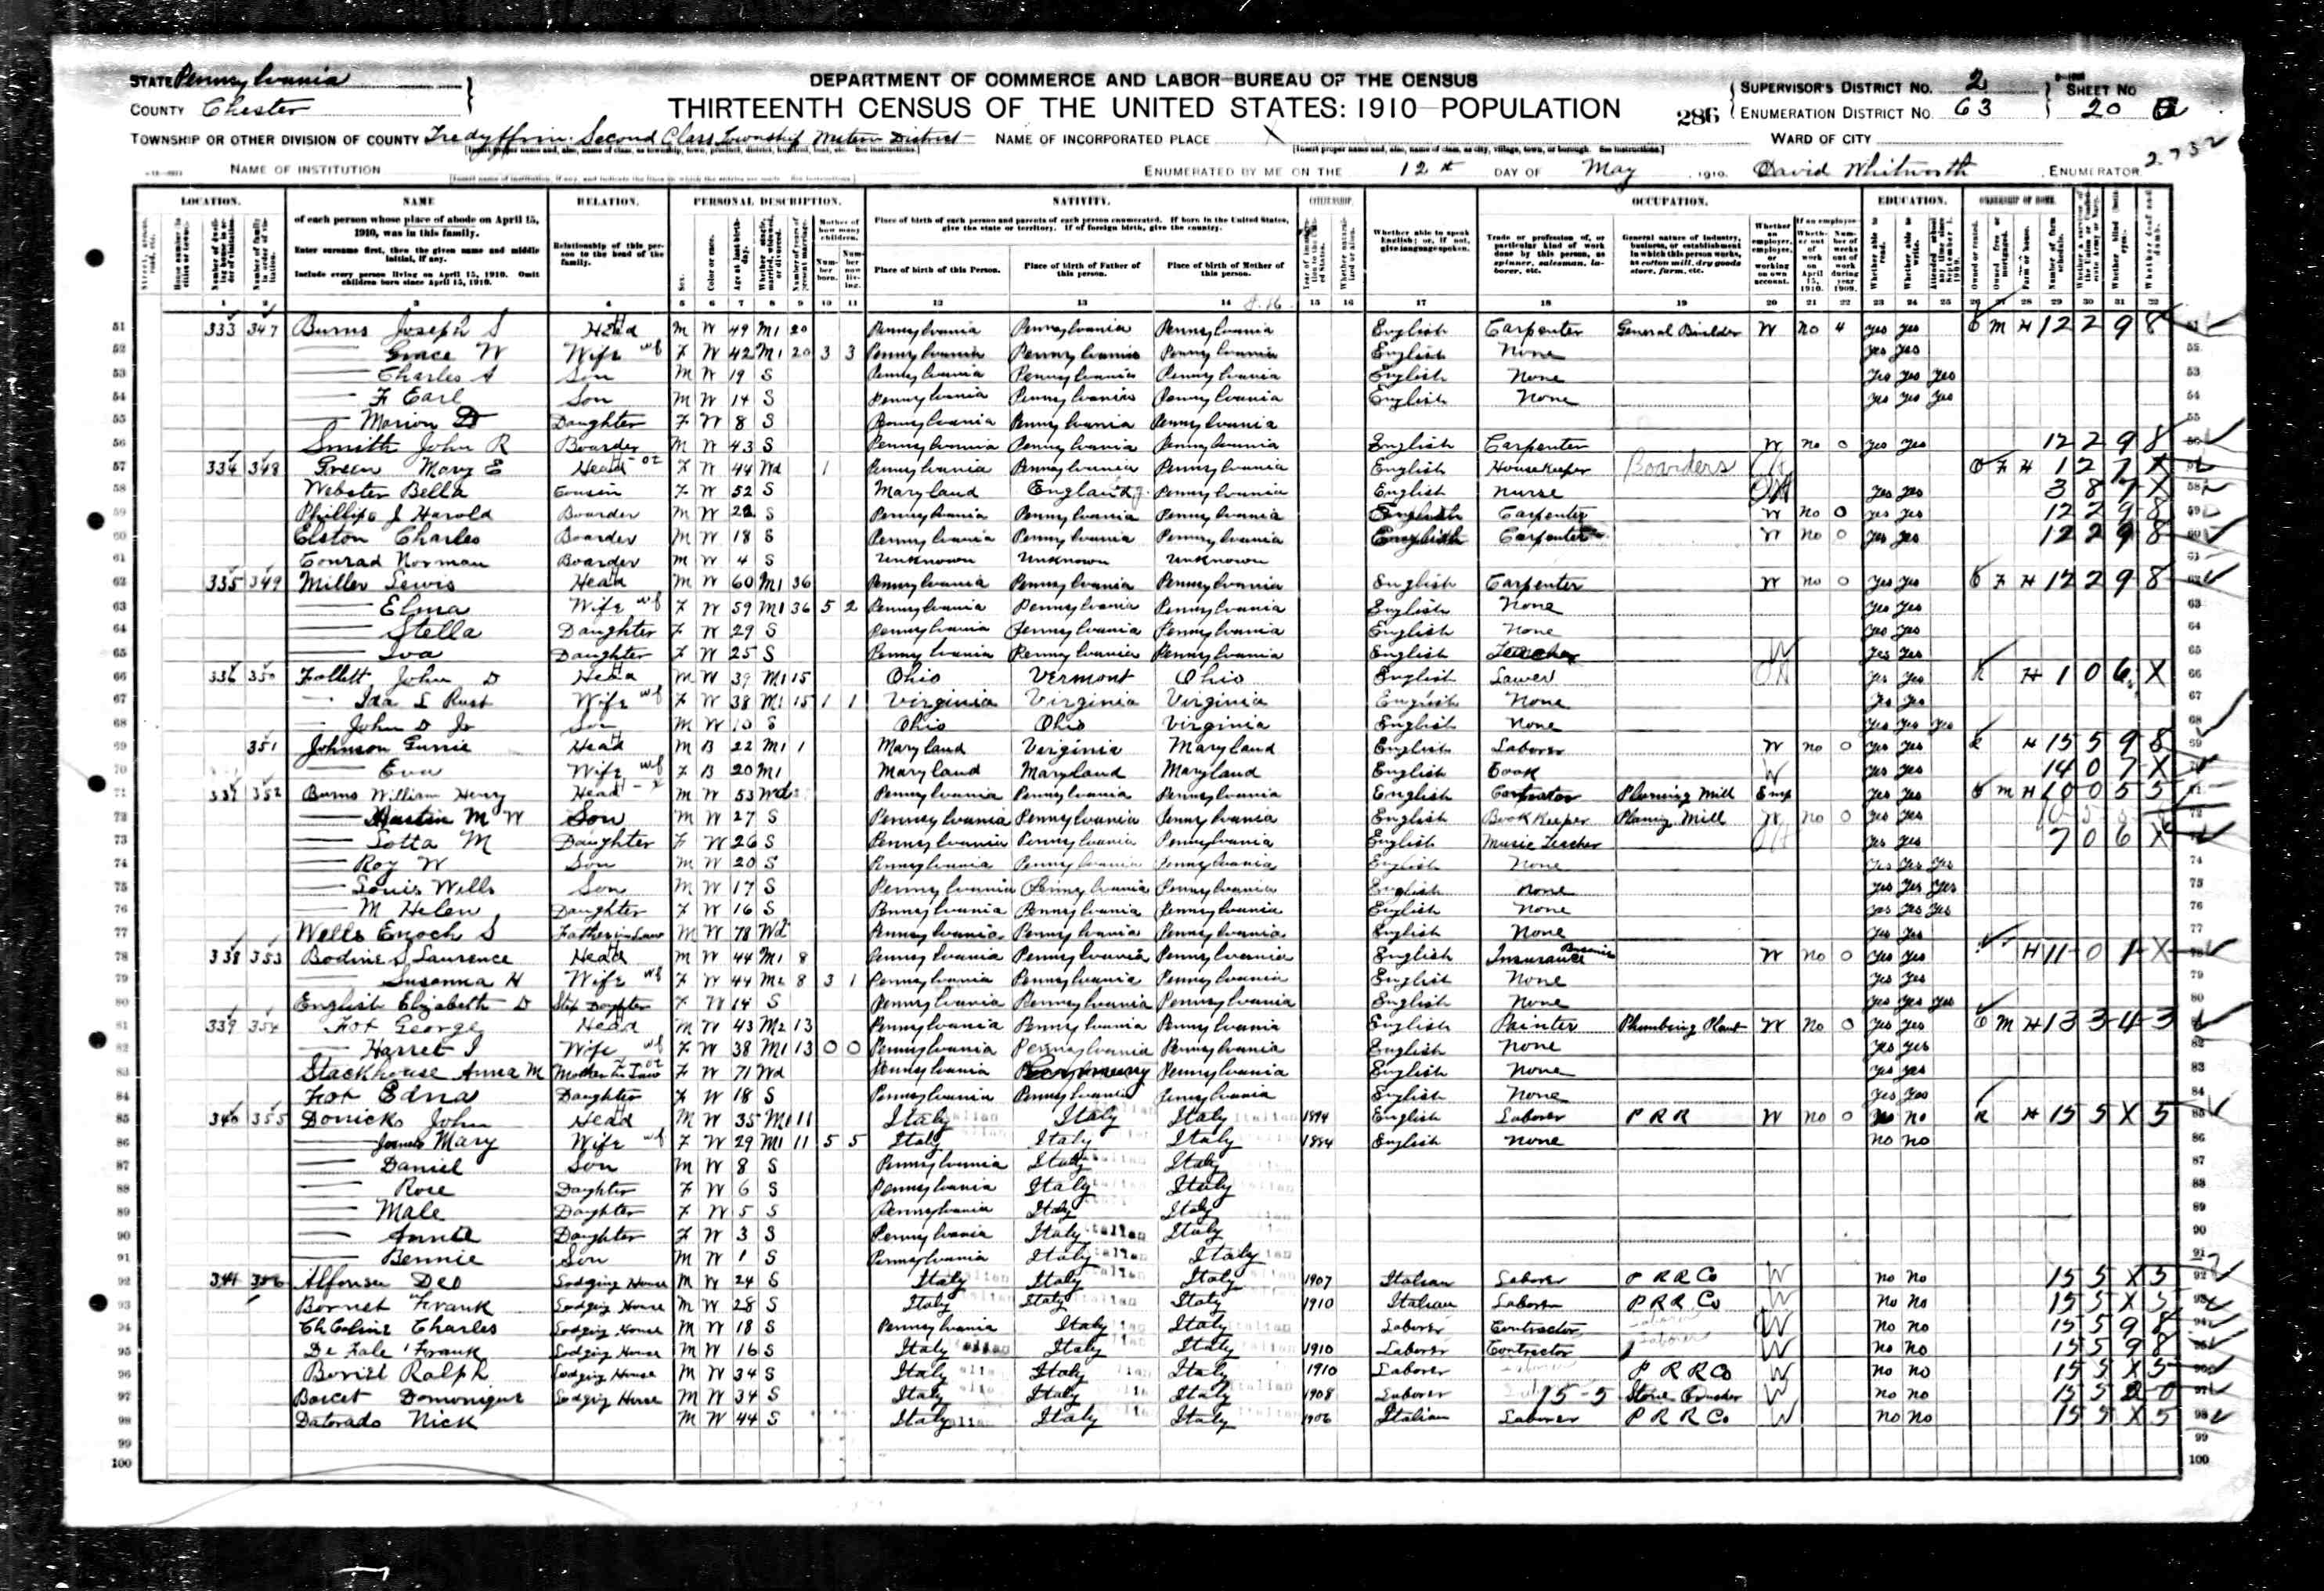 STATE Pennsylvania
COUNTY Chester
DEPARTMENT OF COMMERCE AND LABOR—BUREAU OF THE CENSUS
THIRTEENTH CENSUS OF THE UNITED STATES: 1910—POPULATION
286
SUPERVISOR'S DISTRICT No. 2
ENUMERATION DISTRICT No. 63
SHEET No 20
TOWNSHIP OR OTHER DIVISION OF COUNTY Tredyffrin Second Class Township District
NAME OF INCORPORATED PLACE X
WARD OF CITY
NAME OF INSTITUTION
ENUMERATED BY ME ON THE 12th DAY OF May, 1910. David Whitworth, ENUMERATOR
LOCATION. NAME RELATION. PERSONAL DESCRIPTION. NATIVITY. CITIZENSHIP. OCCUPATION. EDUCATION. OWNERSHIP OF HOME.
of each person whose place of abode on April 15, 1910, was in this family.
Enter surname first, then the given name and middle initial, if any.
Include every person living on April 15, 1910. Omit children born since April 15, 1910.
Relationship of this person to the head of the family.
Place of birth of each person and parents of each person enumerated. If born in the United States, give the state or territory. If of foreign birth, give the country.
Place of birth of this Person. Place of birth of Father of this person. Place of birth of Mother of this person.
Whether able to speak English; or, if not, give language spoken.
Trade or profession of, or particular kind of work done by this person, as spinner, salesman, laborer, etc.
General nature of industry, business, or establishment in which this person works, as cotton mill, dry goods store, farm, etc.
1 2 3 4 5 6 7 8 9 10 11 12 13 14 15 16 17 18 19 20 21 22 23 24 25 26 27 28 29 30 31 32
51 333 347 Burns Joseph S Head M W 49 M1 20 Pennsylvania Pennsylvania Pennsylvania English Carpenter General Builder W no 4 yes yes O M H 12298
52 — Grace W Wife F W 42 M1 20 3 3 Pennsylvania Pennsylvania Pennsylvania English None yes yes
53 — Charles A Son M W 19 S Pennsylvania Pennsylvania Pennsylvania English None yes yes yes
54 — F Earl Son M W 14 S Pennsylvania Pennsylvania Pennsylvania English None yes yes yes
55 — Marion D Daughter F W 8 S Pennsylvania Pennsylvania Pennsylvania
56 Smith John R Boarder M W 43 S Pennsylvania Pennsylvania Pennsylvania English Carpenter W no 0 yes yes 12298
57 334 348 Green Mary E Head F W 44 Wd 1 Pennsylvania Pennsylvania Pennsylvania English Housekeeper Boarders O F H 127X
58 Webster Bella Cousin F W 52 S Maryland England Pennsylvania English Nurse yes yes 387X
59 Phillips J Harold Boarder M W 22 S Pennsylvania Pennsylvania Pennsylvania English Carpenter W no 0 yes yes 12298
60 Elston Charles Boarder M W 18 S Pennsylvania Pennsylvania Pennsylvania English Carpenter W no 0 yes yes 12298
61 Conrad Norman Boarder M W 4 S Unknown Unknown Unknown
62 335 349 Miller Lewis Head M W 60 M1 36 Pennsylvania Pennsylvania Pennsylvania English Carpenter W no 0 yes yes O F H 12298
63 — Elma Wife F W 59 M1 36 5 2 Pennsylvania Pennsylvania Pennsylvania English None yes yes
64 — Stella Daughter F W 29 S Pennsylvania Pennsylvania Pennsylvania English None yes yes
65 — Iva Daughter F W 25 S Pennsylvania Pennsylvania Pennsylvania English Teacher W yes yes
66 336 350 Follett John D Head M W 39 M1 15 Ohio Vermont Ohio English Lawer yes yes R H 106X
67 — Ida L Rust Wife F W 38 M1 15 1 1 Virginia Virginia Virginia English None yes yes
68 — John D Jr Son M W S Ohio Ohio Virginia English None yes yes yes
69 351 Johnson Head M B 22 M1 1 Maryland Virginia Maryland English Laborer W no 0 yes yes R H 15598
70 — Eva Wife F B 20 M1 Maryland Maryland Maryland English Cook W yes yes 1407X
71 337 352 Burns William Henry Head M W 53 Wd Pennsylvania Pennsylvania Pennsylvania English Planing Mill Emp yes yes O M H 10055
72 — M W Son M W 27 S Pennsylvania Pennsylvania Pennsylvania English Book Keeper Planing Mill W no 0 yes yes
73 — Lotta M Daughter F W 26 S Pennsylvania Pennsylvania Pennsylvania English Music Teacher yes yes 706X
74 — Roy W Son M W 20 S Pennsylvania Pennsylvania Pennsylvania English None yes yes yes
75 — Louis Wells Son M W 17 S Pennsylvania Pennsylvania Pennsylvania English None yes yes yes
76 — M Helen Daughter F W 16 S Pennsylvania Pennsylvania Pennsylvania English None yes yes yes
77 Wells Enoch S Father in Law M W 78 Wd Pennsylvania Pennsylvania Pennsylvania English None yes yes
78 338 353 Bodine S Laurence Head M W 44 M1 8 Pennsylvania Pennsylvania Pennsylvania English Insurance W no 0 yes yes H 1101X
79 — Susanna H Wife F W 44 M2 8 3 1 Pennsylvania Pennsylvania Pennsylvania English None yes yes
80 English Elizabeth D Step Daughter F W 14 S Pennsylvania Pennsylvania Pennsylvania English None yes yes yes
81 339 354 Fox George Head M W 43 M2 13 Pennsylvania Pennsylvania Pennsylvania English Painter Plumbing Plant W No 0 yes yes O M H 13343
82 — Harret I Wife F W 38 M1 13 0 0 Pennsylvania Pennsylvania Pennsylvania English None yes yes
83 Stackhouse Anna M Mother in Law F W 71 Wd Pennsylvania Pennsylvania English None yes yes
84 Fox Edna Daughter F W 18 S Pennsylvania Pennsylvania Pennsylvania English None yes yes
85 340 355 Donicks John Head M W 35 M1 11 Italy Italy Italy 1894 English Laborer P R R W no 0 no no R H 155X5
86 — Mary Wife F W 29 M1 11 5 5 Italy Italy Italy English None no no
87 — Daniel Son M W 8 S Pennsylvania Italy Italy
88 — Rose Daughter F W 6 S Pennsylvania Italy Italy
89 — Male Daughter F W 5 S Pennsylvania Italy Italy
90 — Annie Daughter F W 3 S Pennsylvania Italy Italy
91 — Bennie Son M W 1 S Pennsylvania Italy Italy
92 341 356 Alfonse Deo Lodging House M W 24 S Italy Italy Italy 1907 Italian Laborer P R R Co W no no 155X5
93 Bornet Frank Lodging House M W 28 S Italy Italy Italy 1910 Italian Laborer P R R Co W no no 155X5
94 Charles Lodging House M W 18 S Pennsylvania Italy Italy Laborer Contractor W no no 15598
95 De Fale Frank Lodging House M W 16 S Italy Italy Italy 1910 Laborer Contractor W no no 15598
96 Ralph Lodging House M W 34 S Italy Italy Italy 1910 Laborer P R R Co W no no 155X5
97 Barcet Domonique Lodging House M W 34 S Italy Italy Italy 1908 Laborer 15-5 Stone Crusher W no no 15520
98 Datorado Nick M W 44 S Italy Italy Italy 1906 Italian Laborer P R R Co W no no 155X5
99
100